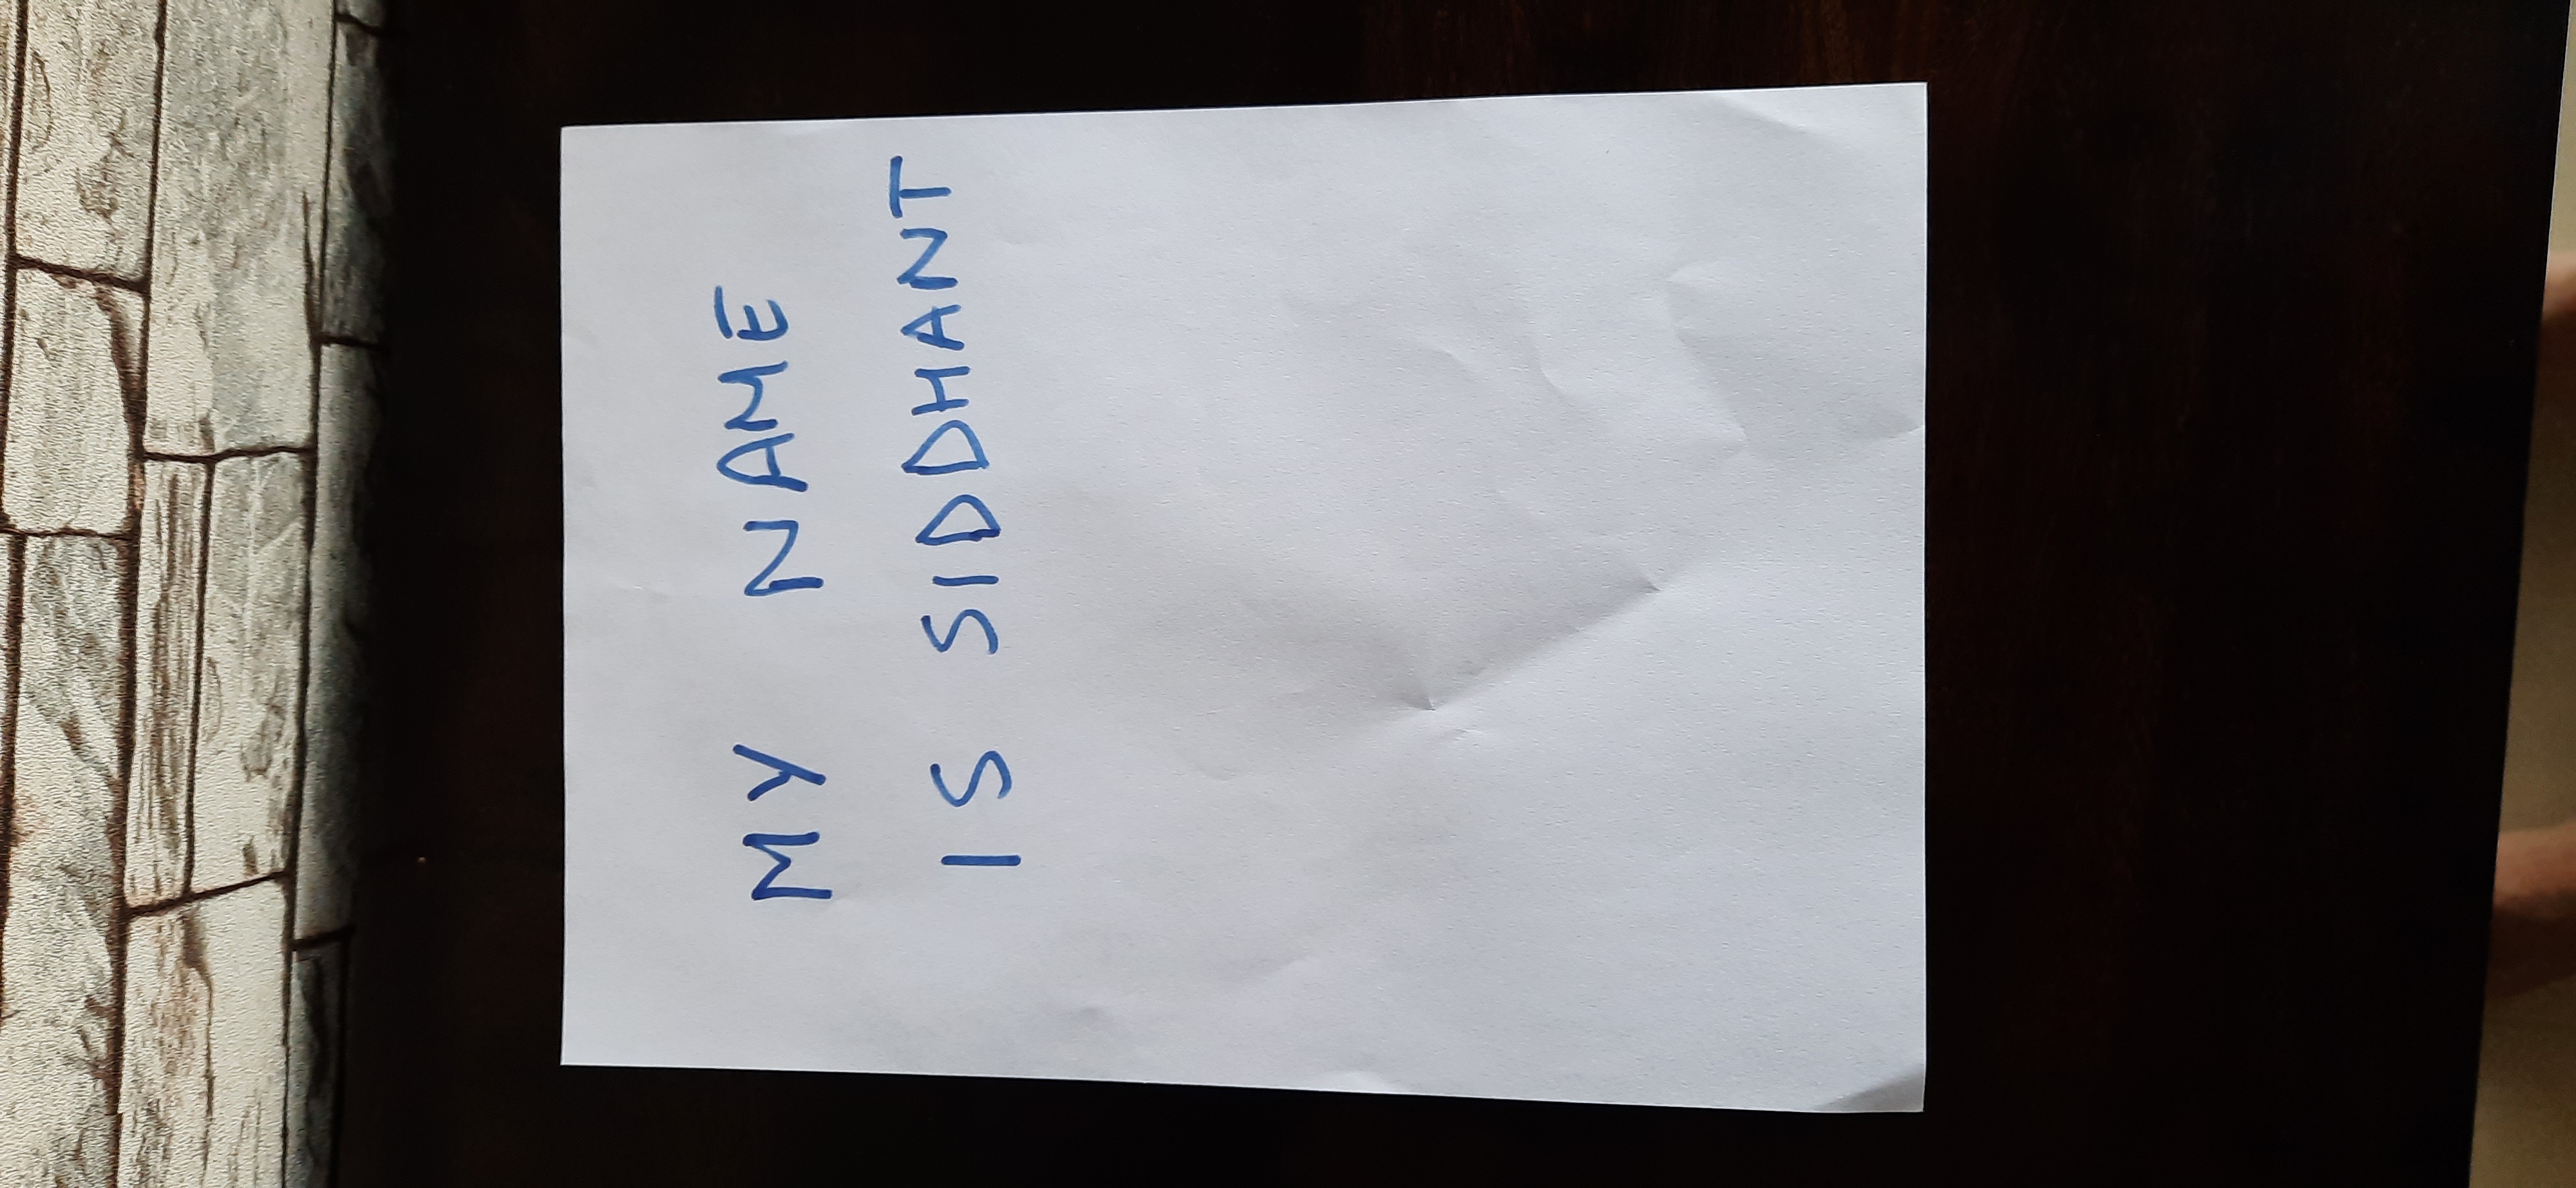 MY NAME
IS SIDDHANT